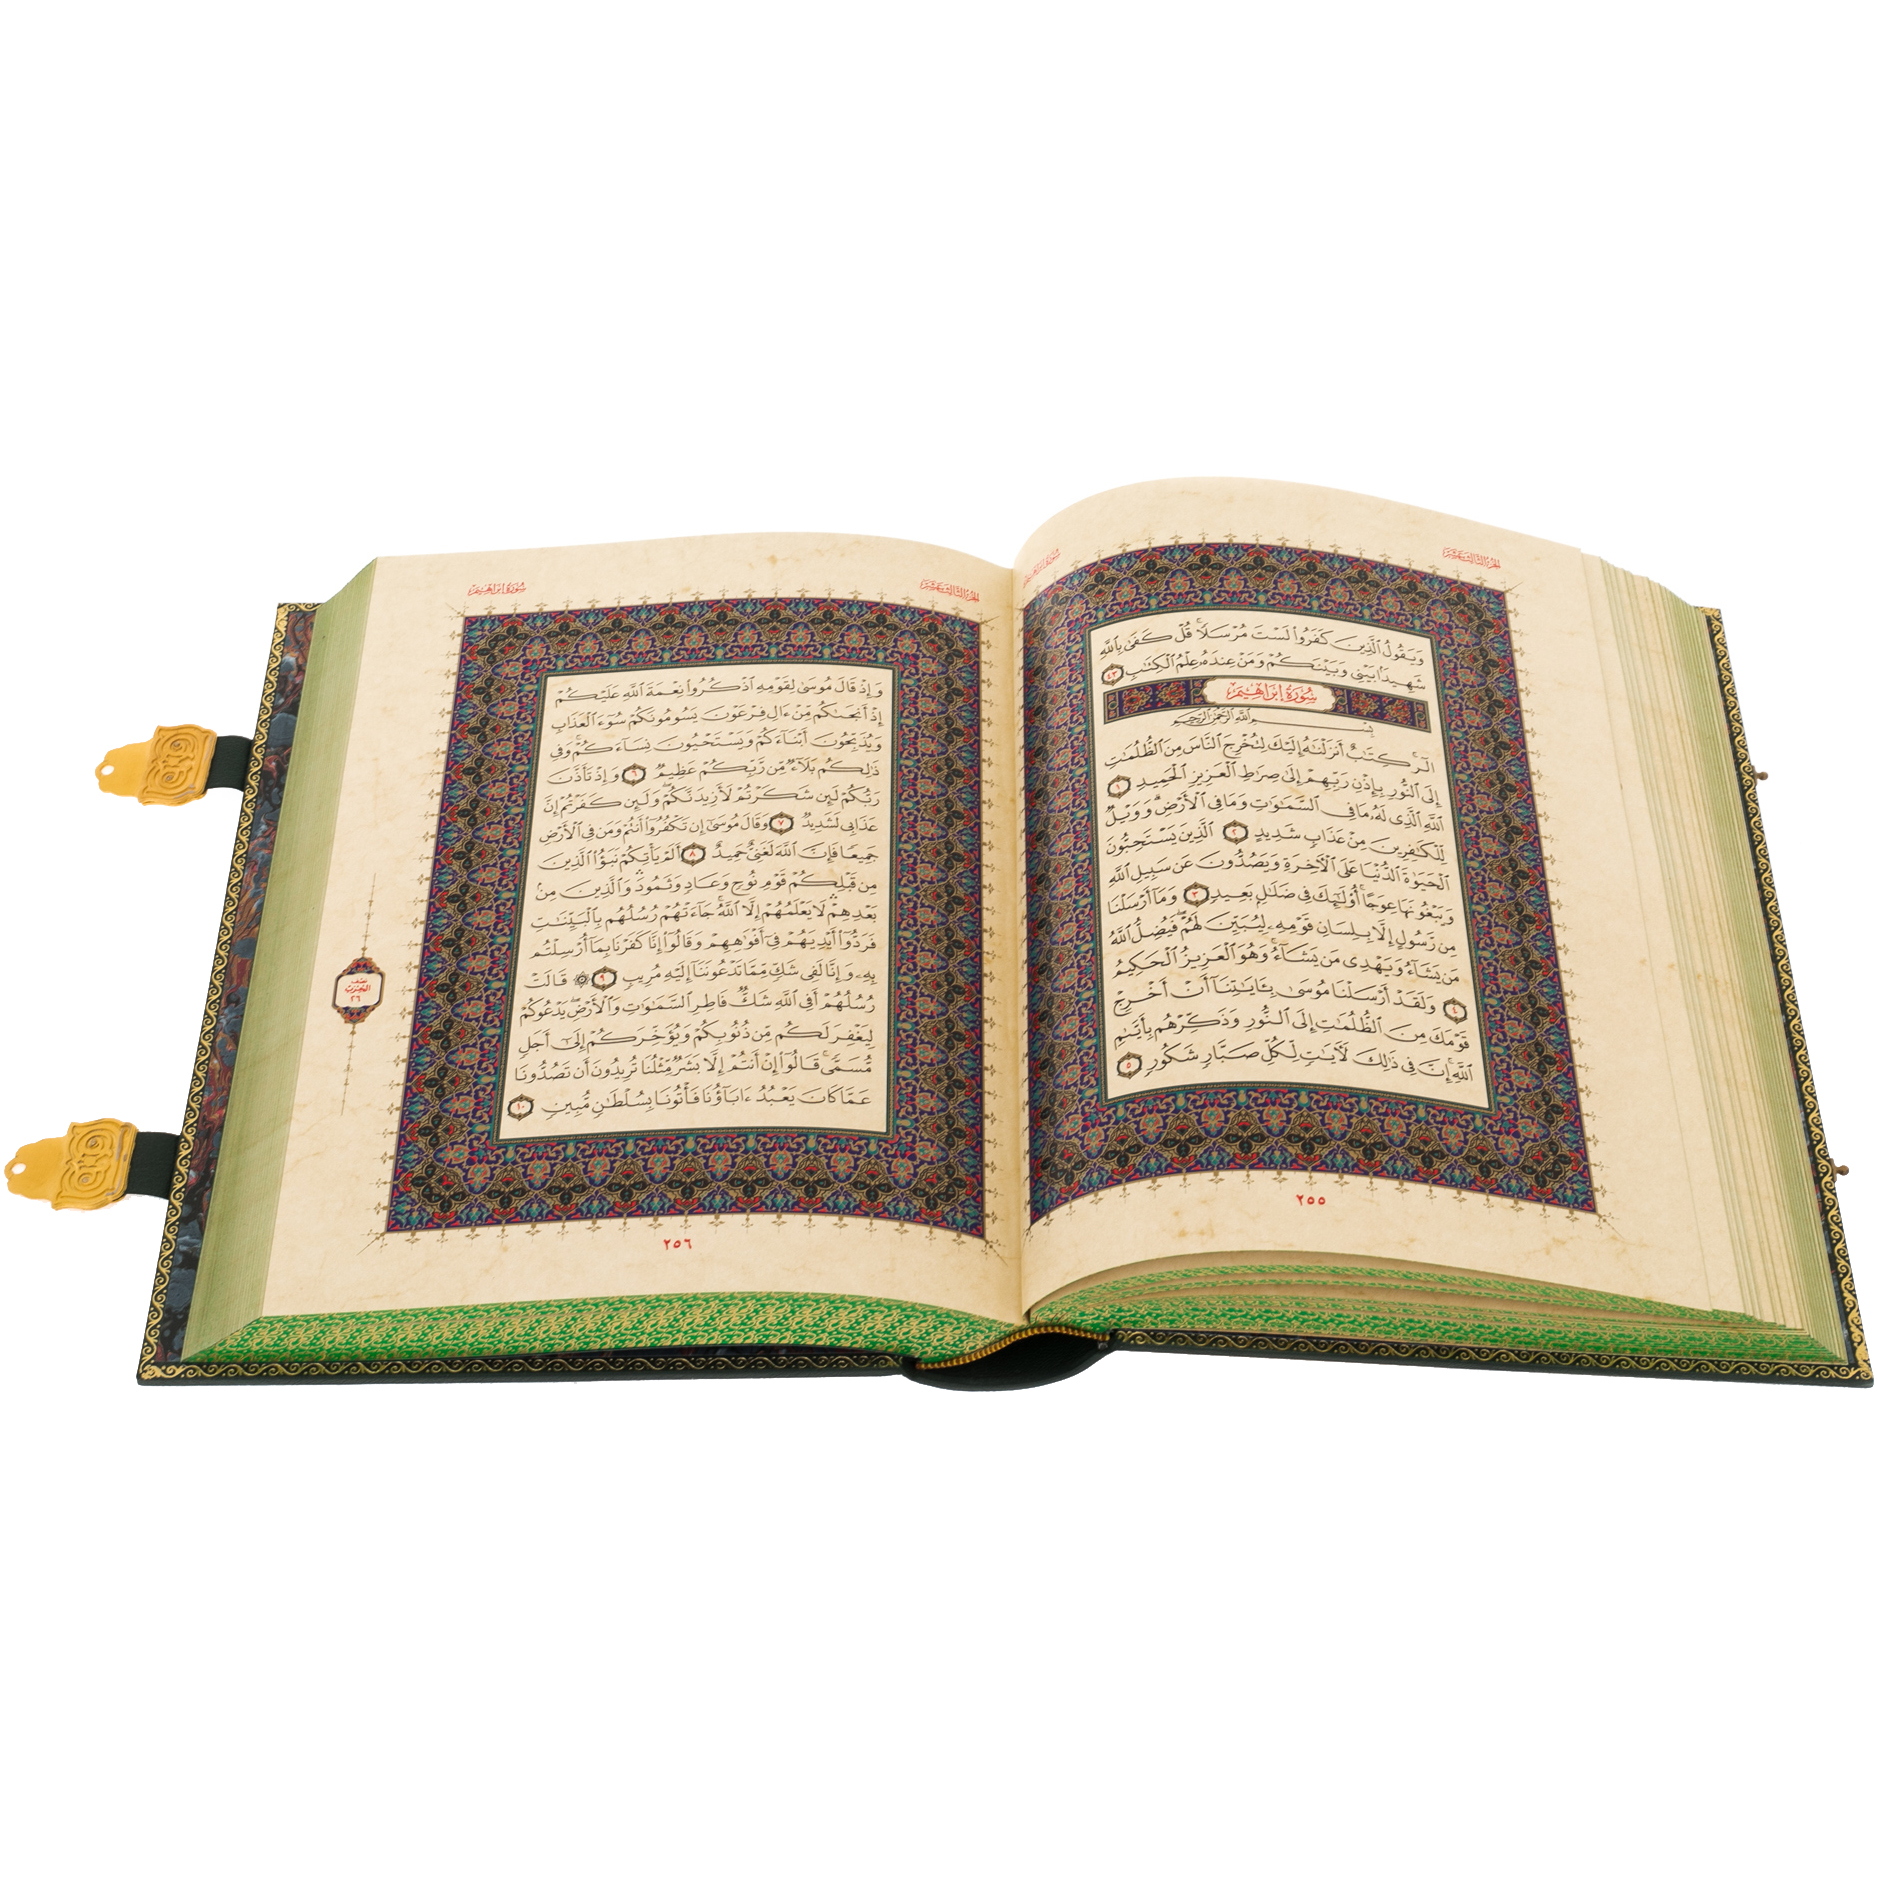 سُورَةُ إبْرَاهِيم
الجُزءُ الثَّالِثَ عَشَرَ
وَيَقُولُ ٱلَّذِينَ كَفَرُوا۟ لَسْتَ مُرْسَلًاۚ قُلْ كَفَىٰ بِٱللَّهِ
شَهِيدًۢا بَيْنِى وَبَيْنَكُمْ وَمَنْ عِندَهُۥ عِلْمُ ٱلْكِتَٰبِ ٤٣
سُورَةُ إبْرَاهِيم
بِسْمِ ٱللَّهِ ٱلرَّحْمَٰنِ ٱلرَّحِيمِ
الٓرۚ كِتَٰبٌ أَنزَلْنَٰهُ إِلَيْكَ لِتُخْرِجَ ٱلنَّاسَ مِنَ ٱلظُّلُمَٰتِ
إِلَى ٱلنُّورِ بِإِذْنِ رَبِّهِمْ إِلَىٰ صِرَٰطِ ٱلْعَزِيزِ ٱلْحَمِيدِ ١
ٱللَّهِ ٱلَّذِى لَهُۥ مَا فِى ٱلسَّمَٰوَٰتِ وَمَا فِى ٱلْأَرْضِۗ وَوَيْلٌ
لِّلْكَٰفِرِينَ مِنْ عَذَابٍ شَدِيدٍ ٢ ٱلَّذِينَ يَسْتَحِبُّونَ
ٱلْحَيَوٰةَ ٱلدُّنْيَا عَلَى ٱلْءَاخِرَةِ وَيَصُدُّونَ عَن سَبِيلِ ٱللَّهِ
وَيَبْغُونَهَا عِوَجًاۚ أُو۟لَٰٓئِكَ فِى ضَلَٰلٍۭ بَعِيدٍ ٣ وَمَآ أَرْسَلْنَا
مِن رَّسُولٍ إِلَّا بِلِسَانِ قَوْمِهِۦ لِيُبَيِّنَ لَهُمْۖ فَيُضِلُّ ٱللَّهُ
مَن يَشَآءُ وَيَهْدِى مَن يَشَآءُۚ وَهُوَ ٱلْعَزِيزُ ٱلْحَكِيمُ
٤ وَلَقَدْ أَرْسَلْنَا مُوسَىٰ بِـَٔايَٰتِنَآ أَنْ أَخْرِجْ
قَوْمَكَ مِنَ ٱلظُّلُمَٰتِ إِلَى ٱلنُّورِ وَذَكِّرْهُم بِأَيَّىٰمِ
ٱللَّهِۚ إِنَّ فِى ذَٰلِكَ لَءَايَٰتٍ لِّكُلِّ صَبَّارٍ شَكُورٍ ٥
٢٥٥
الجُزءُ الثَّالِثَ عَشَرَ
سُورَةُ إبْرَاهِيم
وَإِذْ قَالَ مُوسَىٰ لِقَوْمِهِ ٱذْكُرُوا۟ نِعْمَةَ ٱللَّهِ عَلَيْكُمْ
إِذْ أَنجَىٰكُم مِّنْ ءَالِ فِرْعَوْنَ يَسُومُونَكُمْ سُوٓءَ ٱلْعَذَابِ
وَيُذَبِّحُونَ أَبْنَآءَكُمْ وَيَسْتَحْيُونَ نِسَآءَكُمْۚ وَفِى
ذَٰلِكُم بَلَآءٌ مِّن رَّبِّكُمْ عَظِيمٌ ٦ وَإِذْ تَأَذَّنَ
رَبُّكُمْ لَئِن شَكَرْتُمْ لَأَزِيدَنَّكُمْۖ وَلَئِن كَفَرْتُمْ إِنَّ
عَذَابِى لَشَدِيدٌ ٧ وَقَالَ مُوسَىٰٓ إِن تَكْفُرُوٓا۟ أَنتُمْ وَمَن فِى ٱلْأَرْضِ
جَمِيعًا فَإِنَّ ٱللَّهَ لَغَنِىٌّ حَمِيدٌ ٨ أَلَمْ يَأْتِكُمْ نَبَؤُا۟ ٱلَّذِينَ
مِن قَبْلِكُمْ قَوْمِ نُوحٍ وَعَادٍ وَثَمُودَۛ وَٱلَّذِينَ مِنۢ
بَعْدِهِمْۛ لَا يَعْلَمُهُمْ إِلَّا ٱللَّهُۚ جَآءَتْهُمْ رُسُلُهُم بِٱلْبَيِّنَٰتِ
فَرَدُّوٓا۟ أَيْدِيَهُمْ فِىٓ أَفْوَٰهِهِمْ وَقَالُوٓا۟ إِنَّا كَفَرْنَا بِمَآ أُرْسِلْتُم
بِهِۦ وَإِنَّا لَفِى شَكٍّ مِّمَّا تَدْعُونَنَآ إِلَيْهِ مُرِيبٍ ٩ ۞ قَالَتْ
رُسُلُهُمْ أَفِى ٱللَّهِ شَكٌّ فَاطِرِ ٱلسَّمَٰوَٰتِ وَٱلْأَرْضِۖ يَدْعُوكُمْ
لِيَغْفِرَ لَكُم مِّن ذُنُوبِكُمْ وَيُؤَخِّرَكُمْ إِلَىٰٓ أَجَلٍ
مُّسَمًّىۚ قَالُوٓا۟ إِنْ أَنتُمْ إِلَّا بَشَرٌ مِّثْلُنَا تُرِيدُونَ أَن تَصُدُّونَا
عَمَّا كَانَ يَعْبُدُ ءَابَآؤُنَا فَأْتُونَا بِسُلْطَٰنٍ مُّبِينٍ ١٠
نصف
الحزب
٢٦
٢٥٦